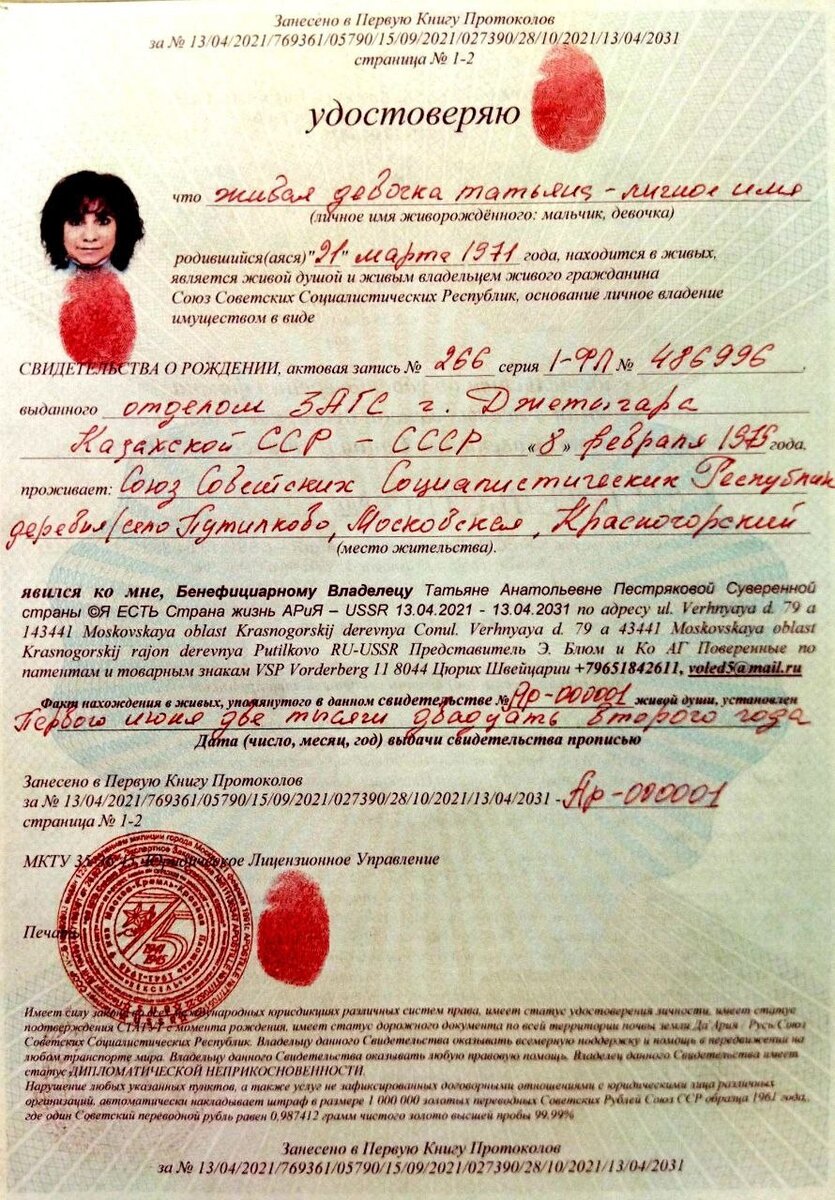 Занесено в Первую Книгу Протоколов
за № 13/04/2021/769361/05790/15/09/2021/027390/28/10/2021/13/04/2031
страница № 1-2
удостоверяю
что живая девочка татьяна - личное имя
(личное имя живорождённого: мальчик, девочка)
родившийся(аяся) "21" марта 1971 года, находится в живых,
является живой душой и живым владельцем живого гражданина
Союз Советских Социалистических Республик, основание личное владение
имуществом в виде
СВИДЕТЕЛЬСТВА О РОЖДЕНИИ, актовая запись № 266 серия I-ФЛ № 486996
выданного отделом ЗАГС г. Джетыгара
Казахской ССР - СССР «8» февраля 1975 года,
проживает: Союз Советских Социалистических Республик
деревня/село Путилково, Московская, Красногорский
(место жительства).
явился ко мне, Бенефициарному Владелецу Татьяне Анатольевне Пестряковой Суверенной
страны ©Я ЕСТЬ Страна жизнь АРиЯ – USSR 13.04.2021 - 13.04.2031 по адресу ul. Verhnyaya d. 79 a
143441 Moskovskaya oblast Krasnogorskij derevnya Conul. Verhnyaya d. 79 a 43441 Moskovskaya oblast
Krasnogorskij rajon derevnya Putilkovo RU-USSR Представитель Э. Блюм и Ко АГ Поверенные по
патентам и товарным знакам VSP Vorderberg 11 8044 Цюрих Швейцарии +79651842611, voled5@mail.ru
Факт нахождения в живых, упомянутого в данном свидетельстве № Ар-000001 живой души, установлен
Первого июня две тысячи двадцать второго года
Дата (число, месяц, год) выдачи свидетельства прописью
Занесено в Первую Книгу Протоколов
за № 13/04/2021/769361/05790/15/09/2021/027390/28/10/2021/13/04/2031 - Ар-000001
страница № 1-2
МКТУ 35-36-45, Юридическое Лицензионное Управление
Печать
Имеет силу закона во всех международных юрисдикциях различных систем права, имеет статус удостоверения личности, имеет статус
подтверждения СТАТУС с момента рождения, имеет статус дорожного документа по всей территории почвы земли Да'Ария | Русь Союз
Советских Социалистических Республик. Владельцу данного Свидетельства оказывать всемерную поддержку и помощь в передвижении на
любом транспорте мира. Владельцу данного Свидетельства оказывать любую правовую помощь. Владелец данного Свидетельства имеет
статус ДИПЛОМАТИЧЕСКОЙ НЕПРИКОСНОВЕННОСТИ.
Нарушение любых указанных пунктов, а также услуг не зафиксированных договорными отношениями с юридическими лица различных
организаций, автоматически накладывает штраф в размере 1 000 000 золотых переводных Советских Рублей Союз ССР образца 1961 года,
где один Советский переводной рубль равен 0,987412 грамм чистого золото высшей пробы 99.99%
Занесено в Первую Книгу Протоколов
за № 13/04/2021/769361/05790/15/09/2021/027390/28/10/2021/13/04/2031